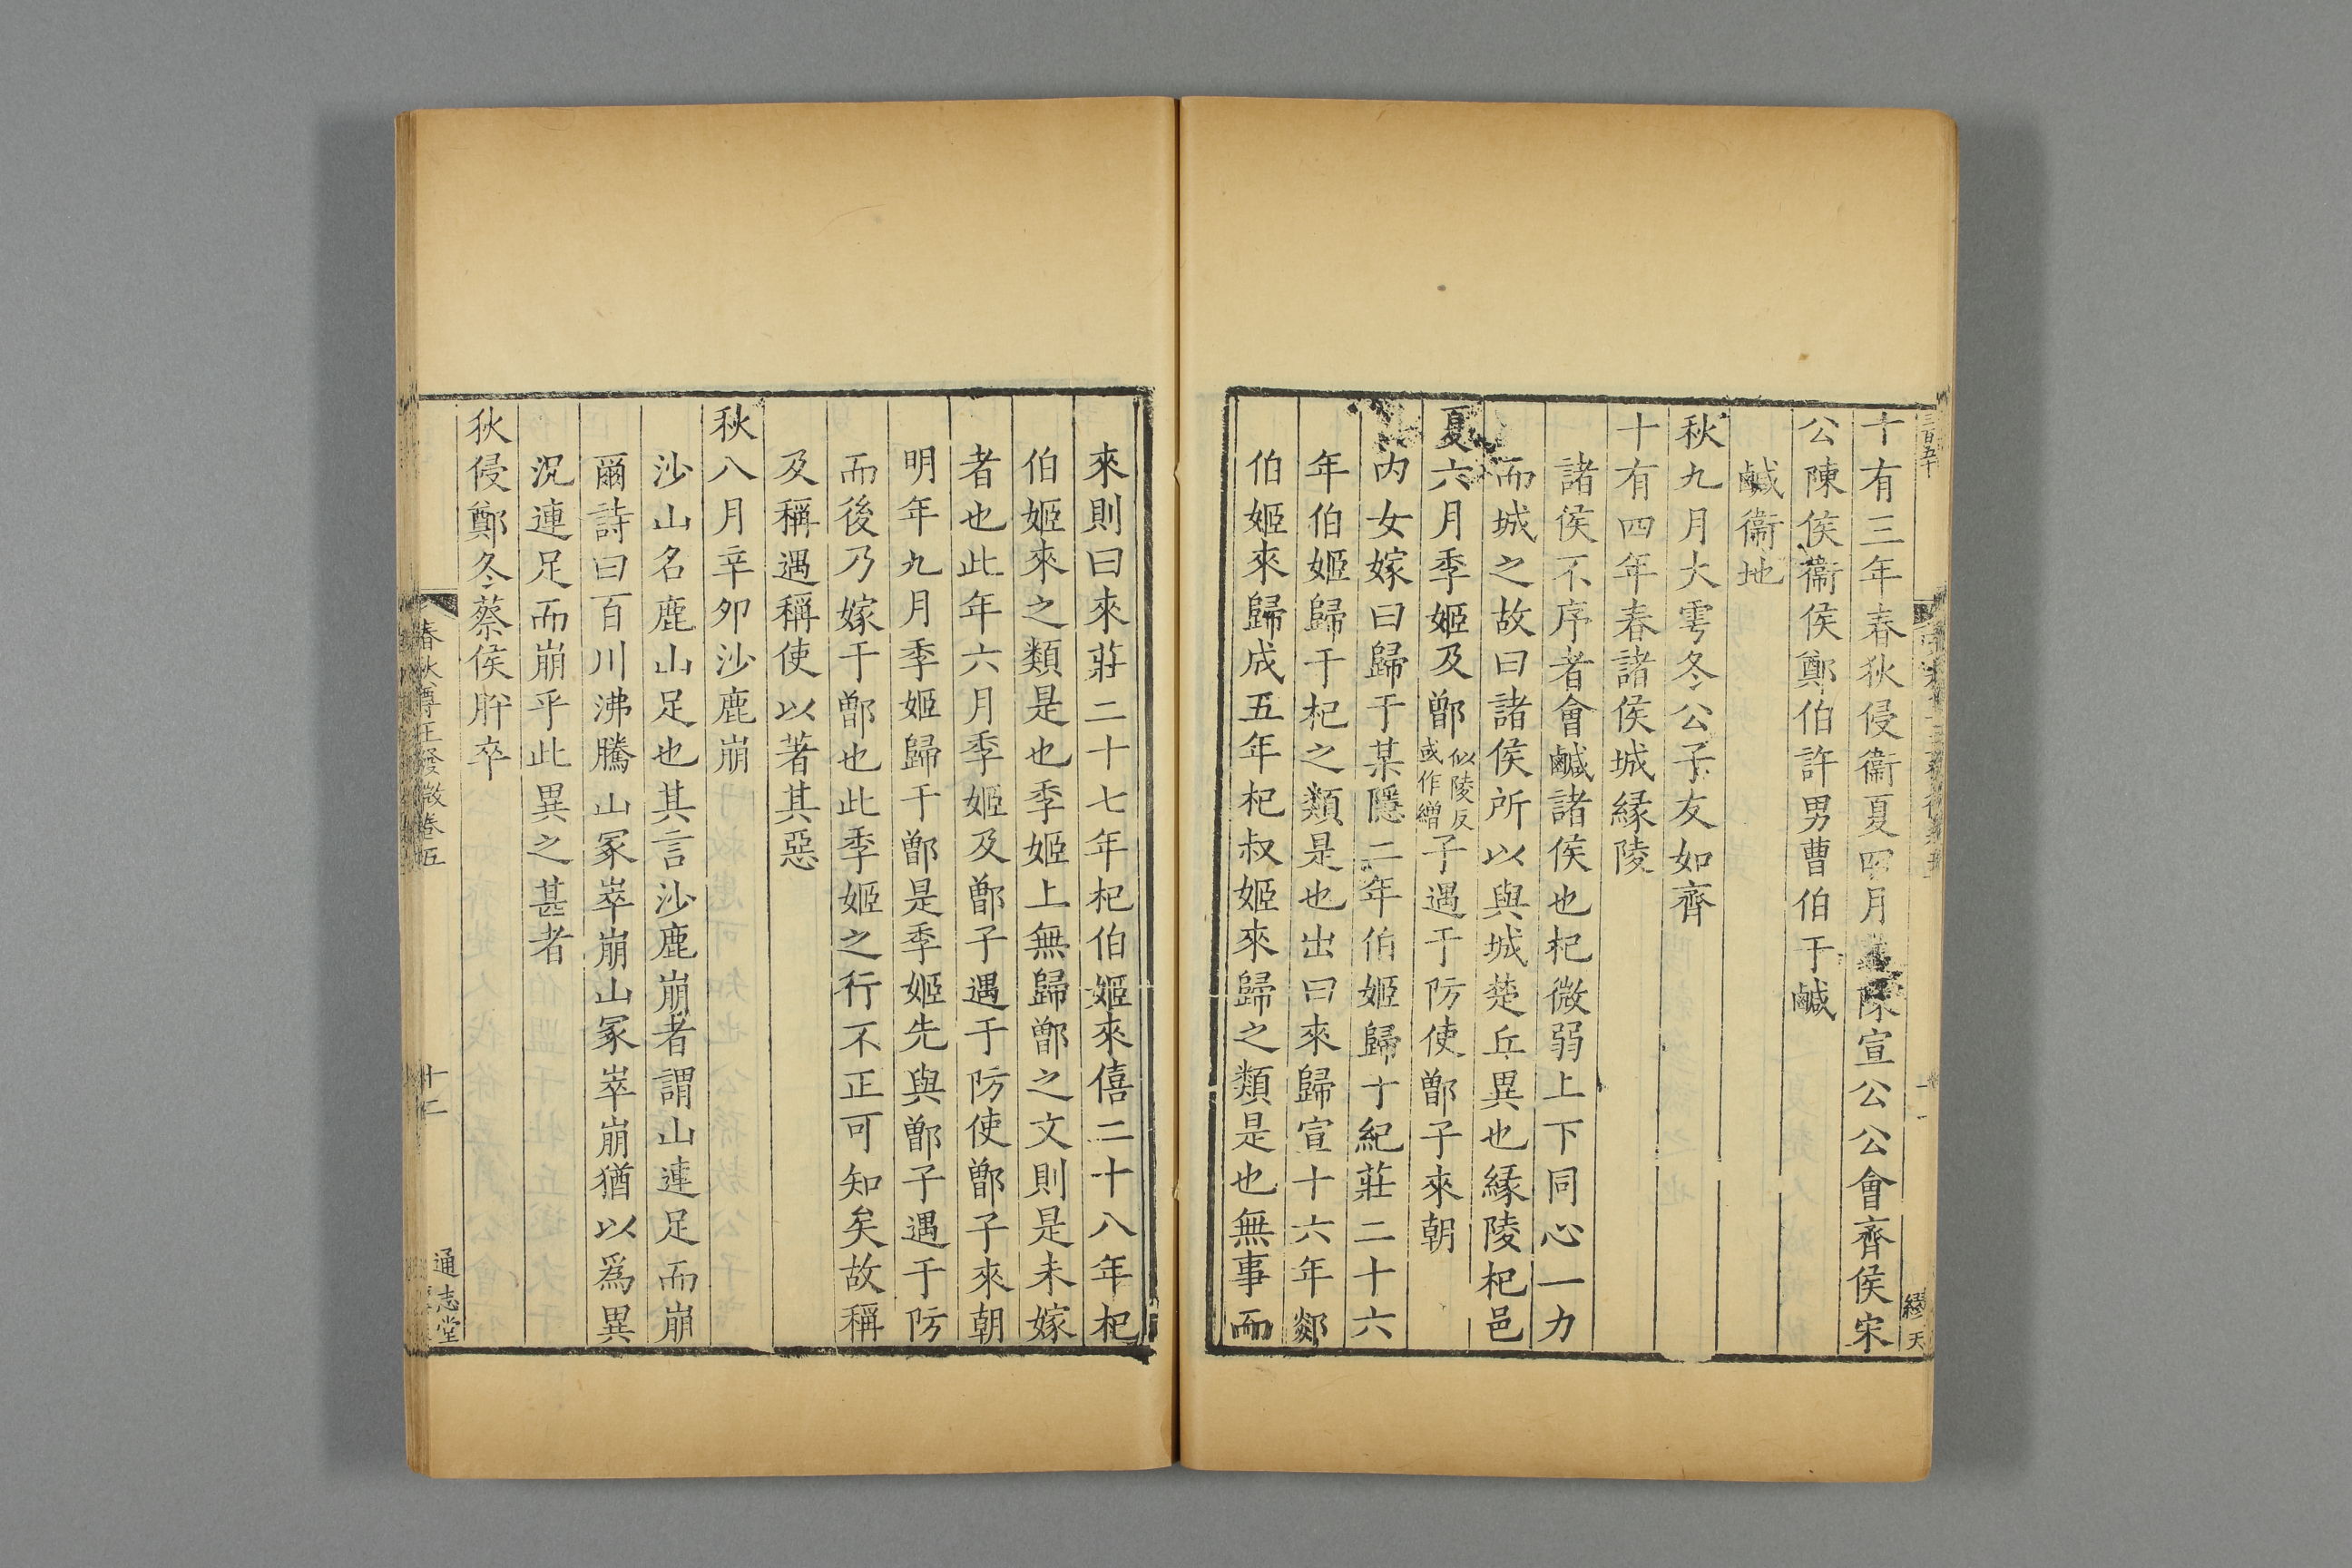 三百五十
十有三年春狄侵衞夏四月陳宣公公會齊侯宋
公陳侯衞侯鄭伯許男曹伯于鹹
鹹衞地
秋九月大雩冬公子友如齊
十有四年春諸侯城緣陵
諸侯不序者會鹹諸侯也杞微弱上下同心一力
而城之故曰諸侯所以與城楚丘異也緣陵杞邑
夏六月季姬及鄫似陵反或作繒子遇于防使鄫子來朝
内女嫁曰歸于某隱二年伯姬歸于紀莊二十六
年伯姬歸于杞之類是也出曰來歸宣十六年郯
伯姬來歸成五年杞叔姬來歸之類是也無事而
來則曰來莊二十七年杞伯姬來僖二十八年杞
伯姬來之類是也季姬上無歸鄫之文則是未嫁
者也此年六月季姬及鄫子遇于防使鄫子來朝
明年九月季姬歸于鄫是季姬先與鄫子遇于防
而後乃嫁于鄫也此季姬之行不正可知矣故稱
及稱遇稱使以著其惡
秋八月辛卯沙鹿崩
沙山名鹿山足也其言沙鹿崩者謂山連足而崩
爾詩曰百川沸騰山冢崒崩山冢崒崩猶以爲異
況連足而崩乎此異之甚者
狄侵鄭冬蔡侯肸卒
春秋尊王發微卷五
十二
通志堂